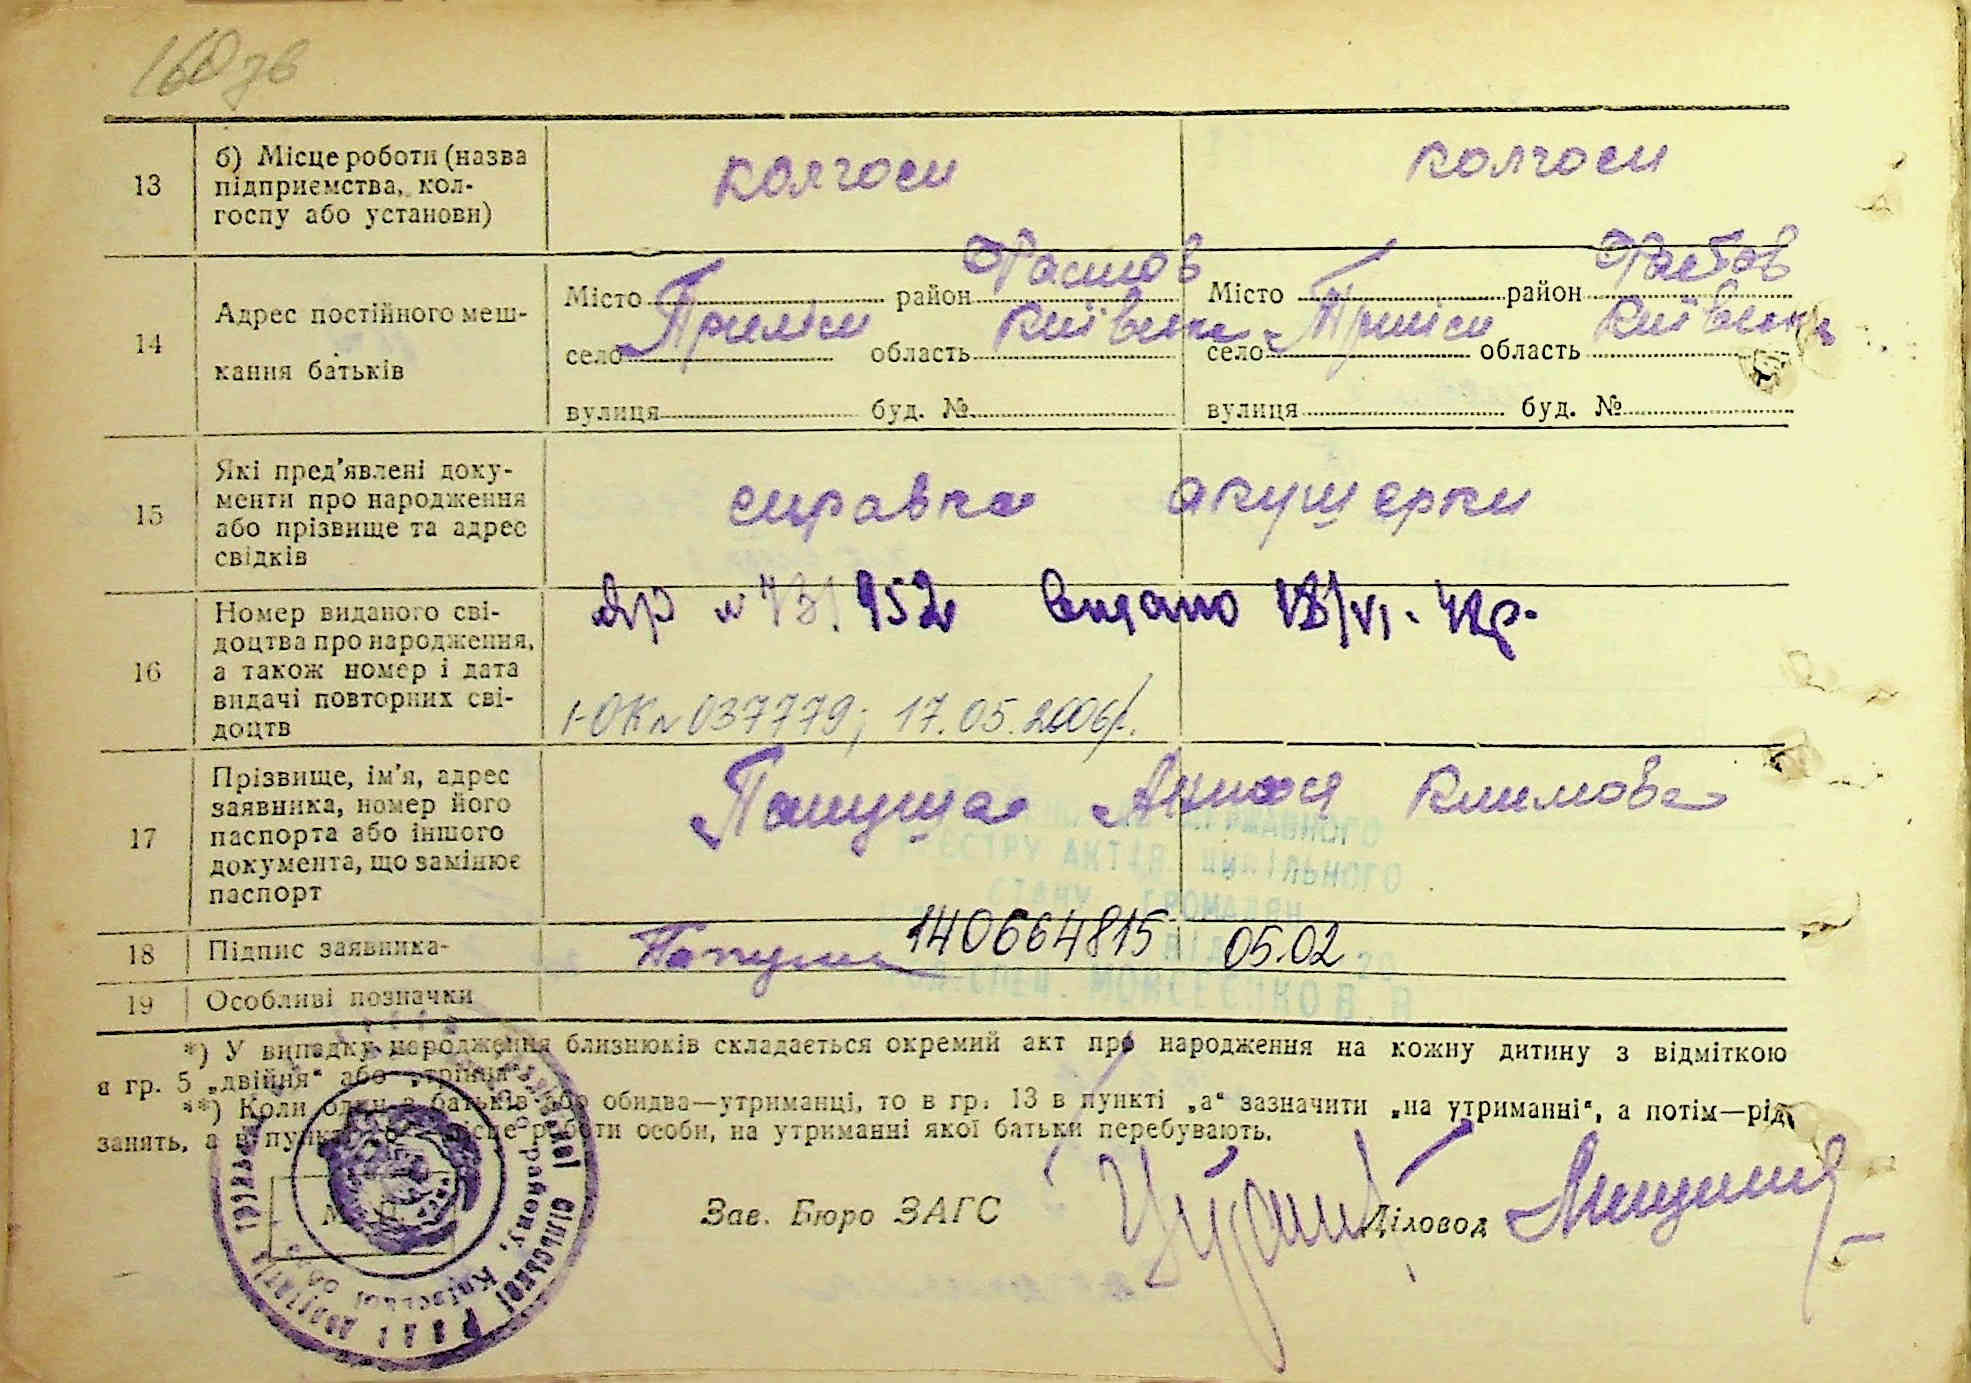 160 зв
13 б) Місце роботи (назва
підприємства, кол-
госпу або установи)
колгосп колгосп
14 Адрес постійного меш-
кання батьків
Місто район Фастов Місто район Фастов
село область Київська село область Київська
вулиця буд. № вулиця буд. №
15 Які пред'явлені доку-
менти про народження
або прізвище та адрес
свідків
справка акушерки
16 Номер виданого сві-
доцтва про народження,
а також номер і дата
видачі повторних сві-
доцтв
952 18/VI
І-ОК № 037779; 17.05.2006
17 Прізвище, ім'я, адрес
заявника, номер його
паспорта або іншого
документа, що замінює
паспорт
РЕЄСТРУ АКТІВ ЦИВІЛЬНОГО
СТАНУ ГРОМАДЯН
18 Підпис заявника
140664815 05.02
19 Особливі позначки
*) У випадку народження близнюків складається окремий акт про народження на кожну дитину з відміткою
в гр. 5 „двійня“ або „трійня“.
**) Коли один з батьків або обидва—утриманці, то в гр. 13 в пункті „а“ зазначити „на утриманні“, а потім—рід
занять, а в пункті місце роботи особи, на утриманні якої батьки перебувають.
Зав. Бюро ЗАГС Діловод